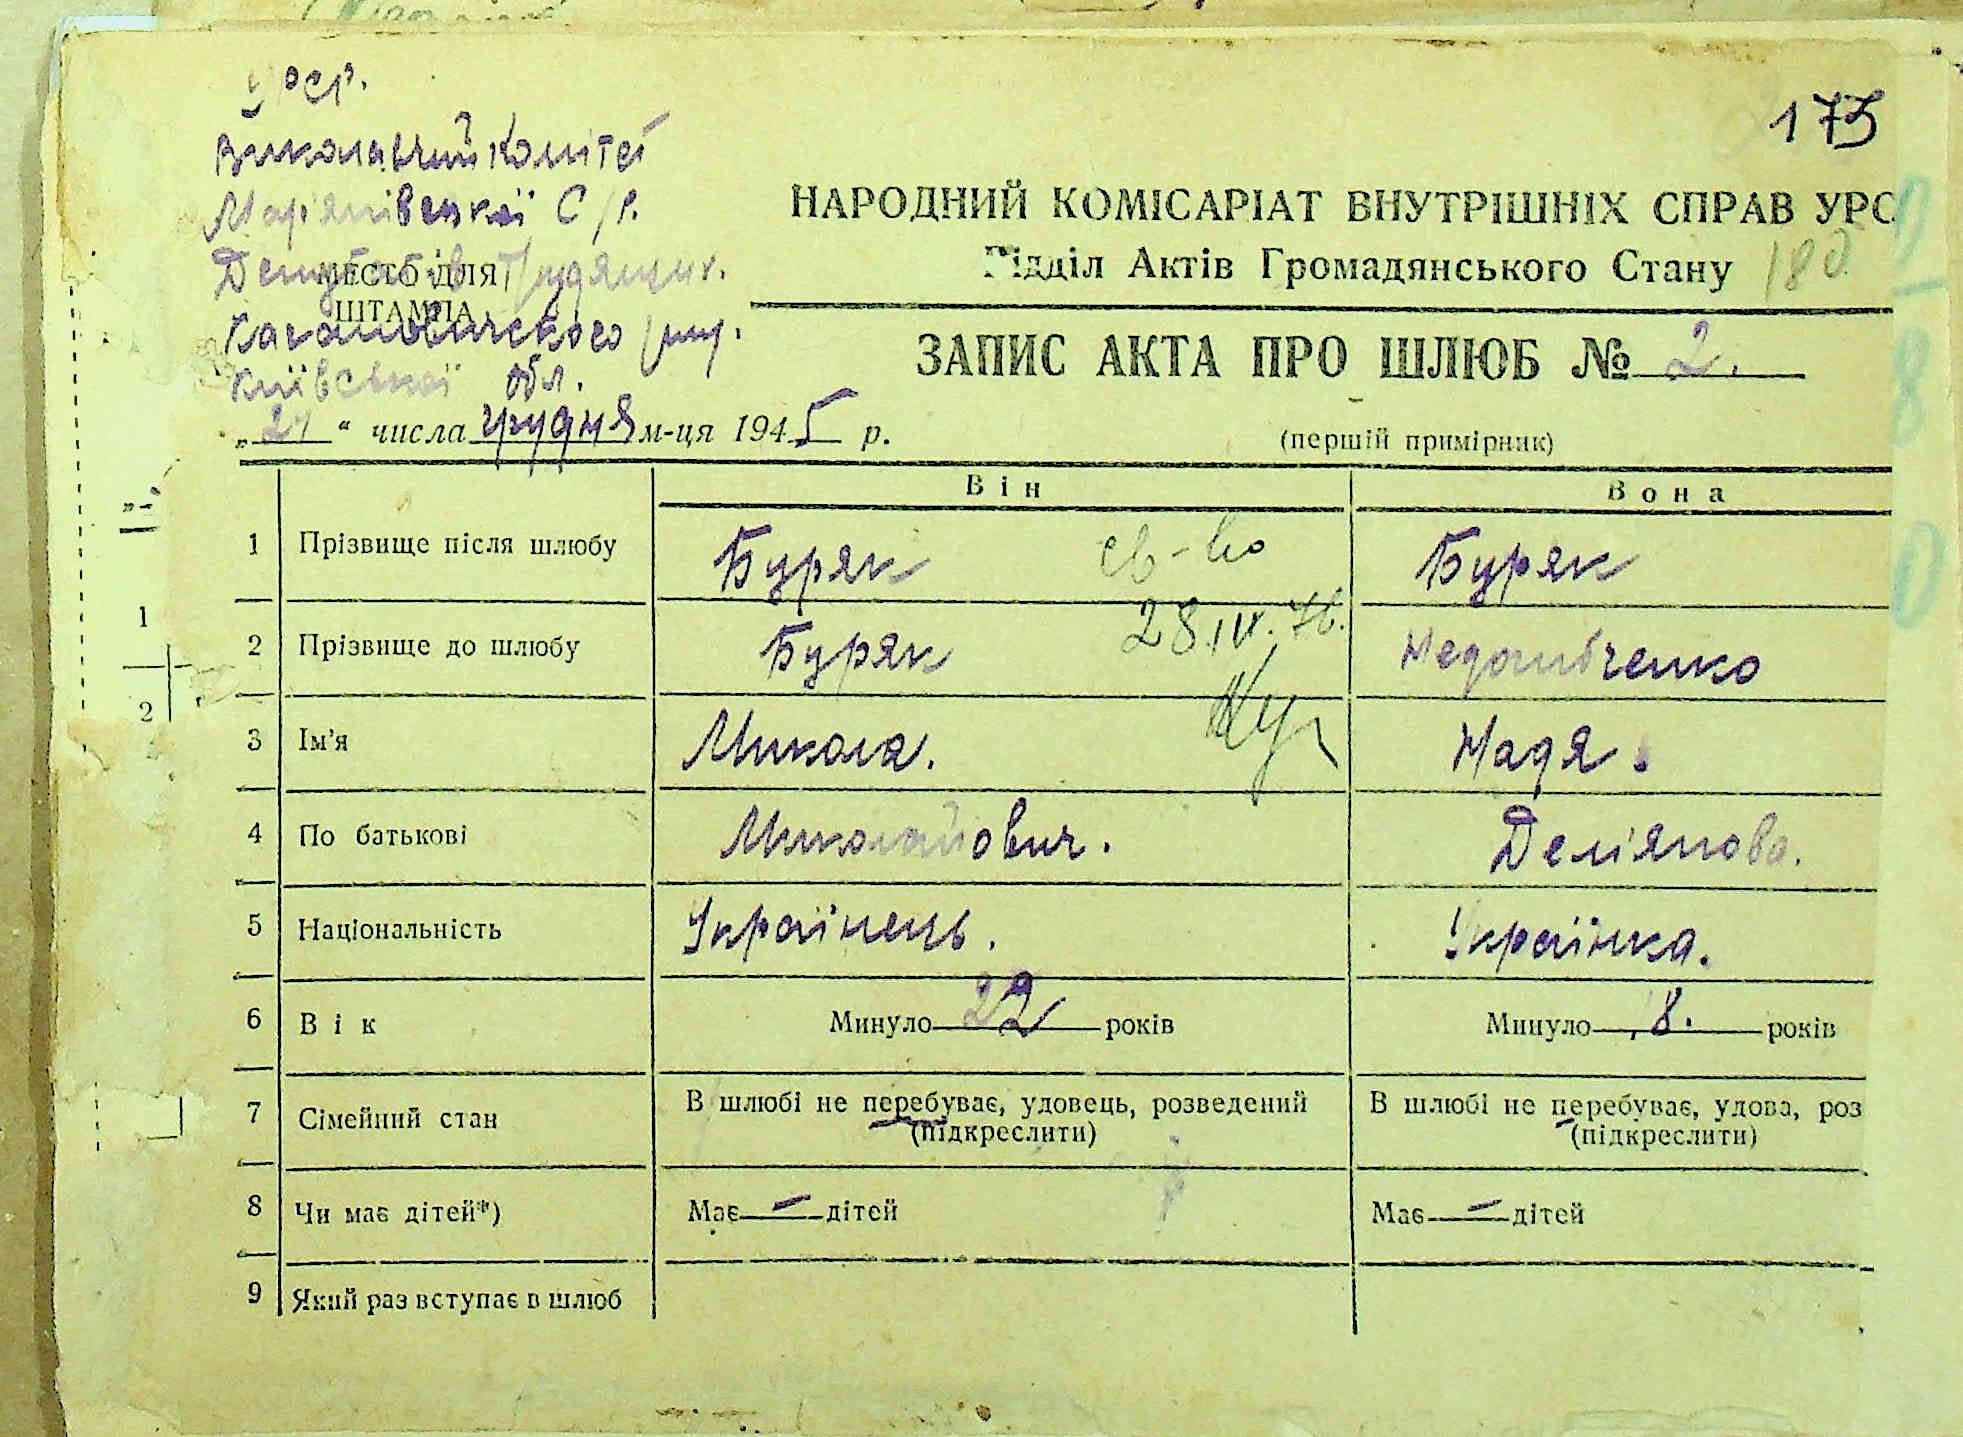 УРСР.
Виконавчий Комітет
Мар'янівської С/р.
Депутатів Трудящих.
МЕСТО ДЛЯ
ШТАМПА
Кагановичского
Київської обл.
175
НАРОДНИЙ КОМІСАРІАТ ВНУТРІШНІХ СПРАВ УРС
Відділ Актів Громадянського Стану 180
ЗАПИС АКТА ПРО ШЛЮБ № 2.
„ “ числа грудня м-ця 1945 р.
(першій примірник)
Він Вона
1 Прізвище після шлюбу Буряк св-во Буряк
2 Прізвище до шлюбу Буряк 28.IV.76.
3 Ім’я Микола. Надя.
4 По батькові Миколайович. Дем'янова.
5 Національність Українець. Українка.
6 Вік Минуло 22 років Минуло 18. років
7 Сімейний стан В шлюбі не перебуває, удовець, розведений В шлюбі не перебуває, удова, роз
(підкреслити) (підкреслити)
8 Чи має дітей*) Має – дітей Має – дітей
9 Який раз вступає в шлюб
1
2
180